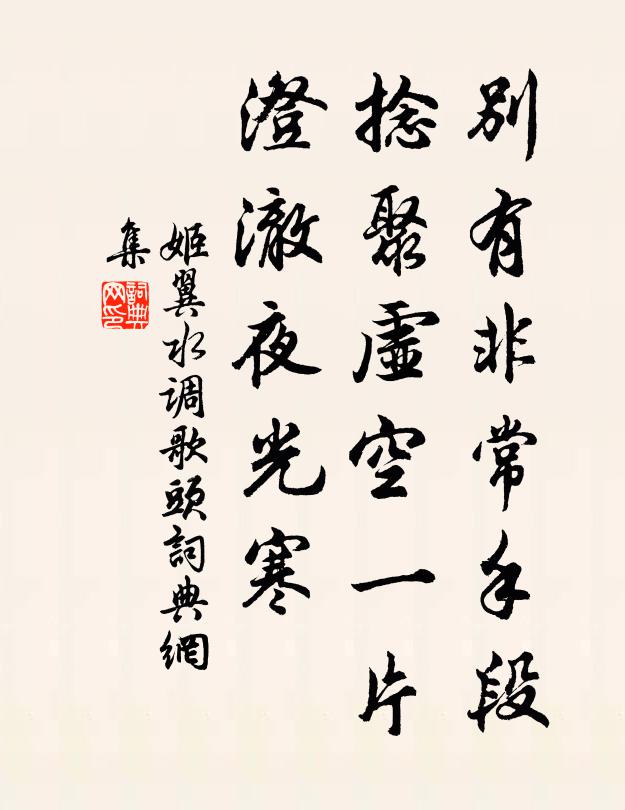 別有非常手段
捻聚虛空一片
澄澈夜光寒
姬翼水调歌頭詞典網
集
詞典网印